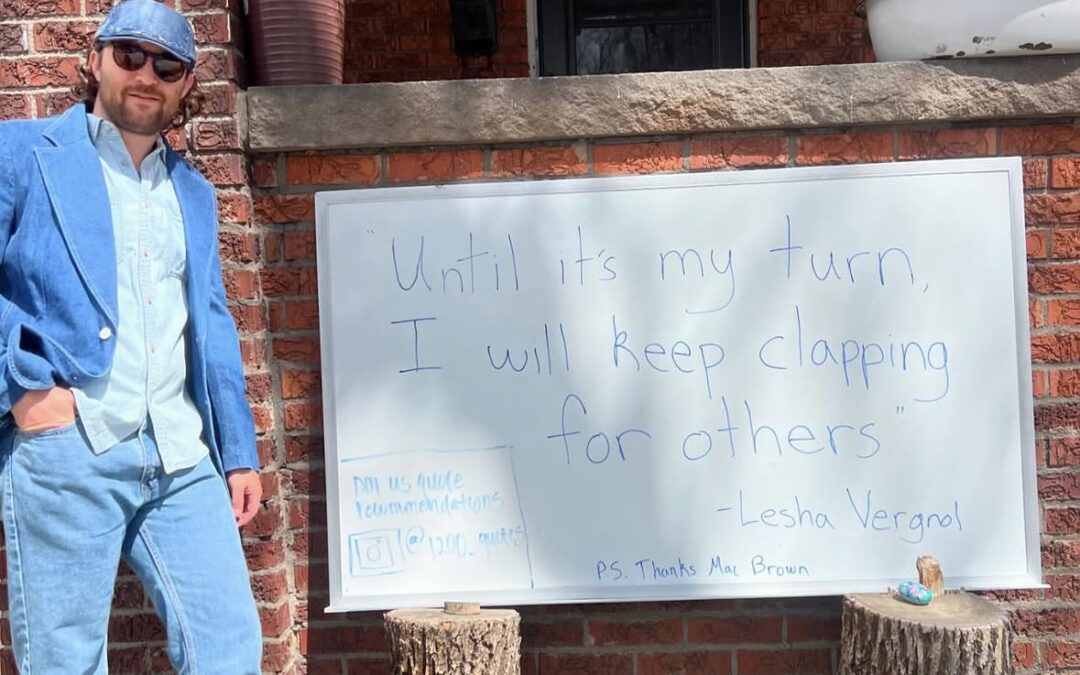 "Until it's my turn,
I will keep clapping
for others"
-Lesha Vergnol
P.S. Thanks Mac Brown
DM us quote
recommendations
@1200_quotes